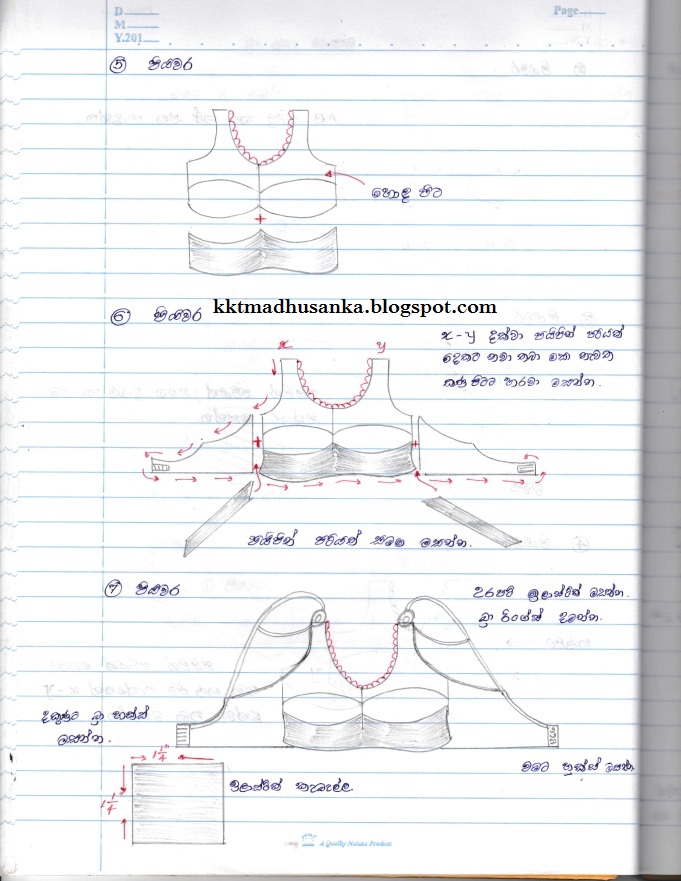 D
M
Y.201
Page
5 පියවර
හොඳ පිට
kktmadhusanka.blogspot.com
6 පියවර
x y
x - y දක්වා පයිපින් පටියක්
දෙකට නවා තබා මසා නැවත
කණපිටට හරවා මසන්න.
පයිපින් පටියක් සමඟ මසන්න.
7 පියවර
උරපටි ඉලාස්ටික් මසන්න.
බ්‍රා රිංග්ස් දමන්න.
දකුණට බ්‍රා හුක්ස්
මසන්න.
1 1/4"
1 1/4
ඉලාස්ටික් කැබැල්ල
වමට හුක්ස් මසන්න.
A Quality Nataka Product